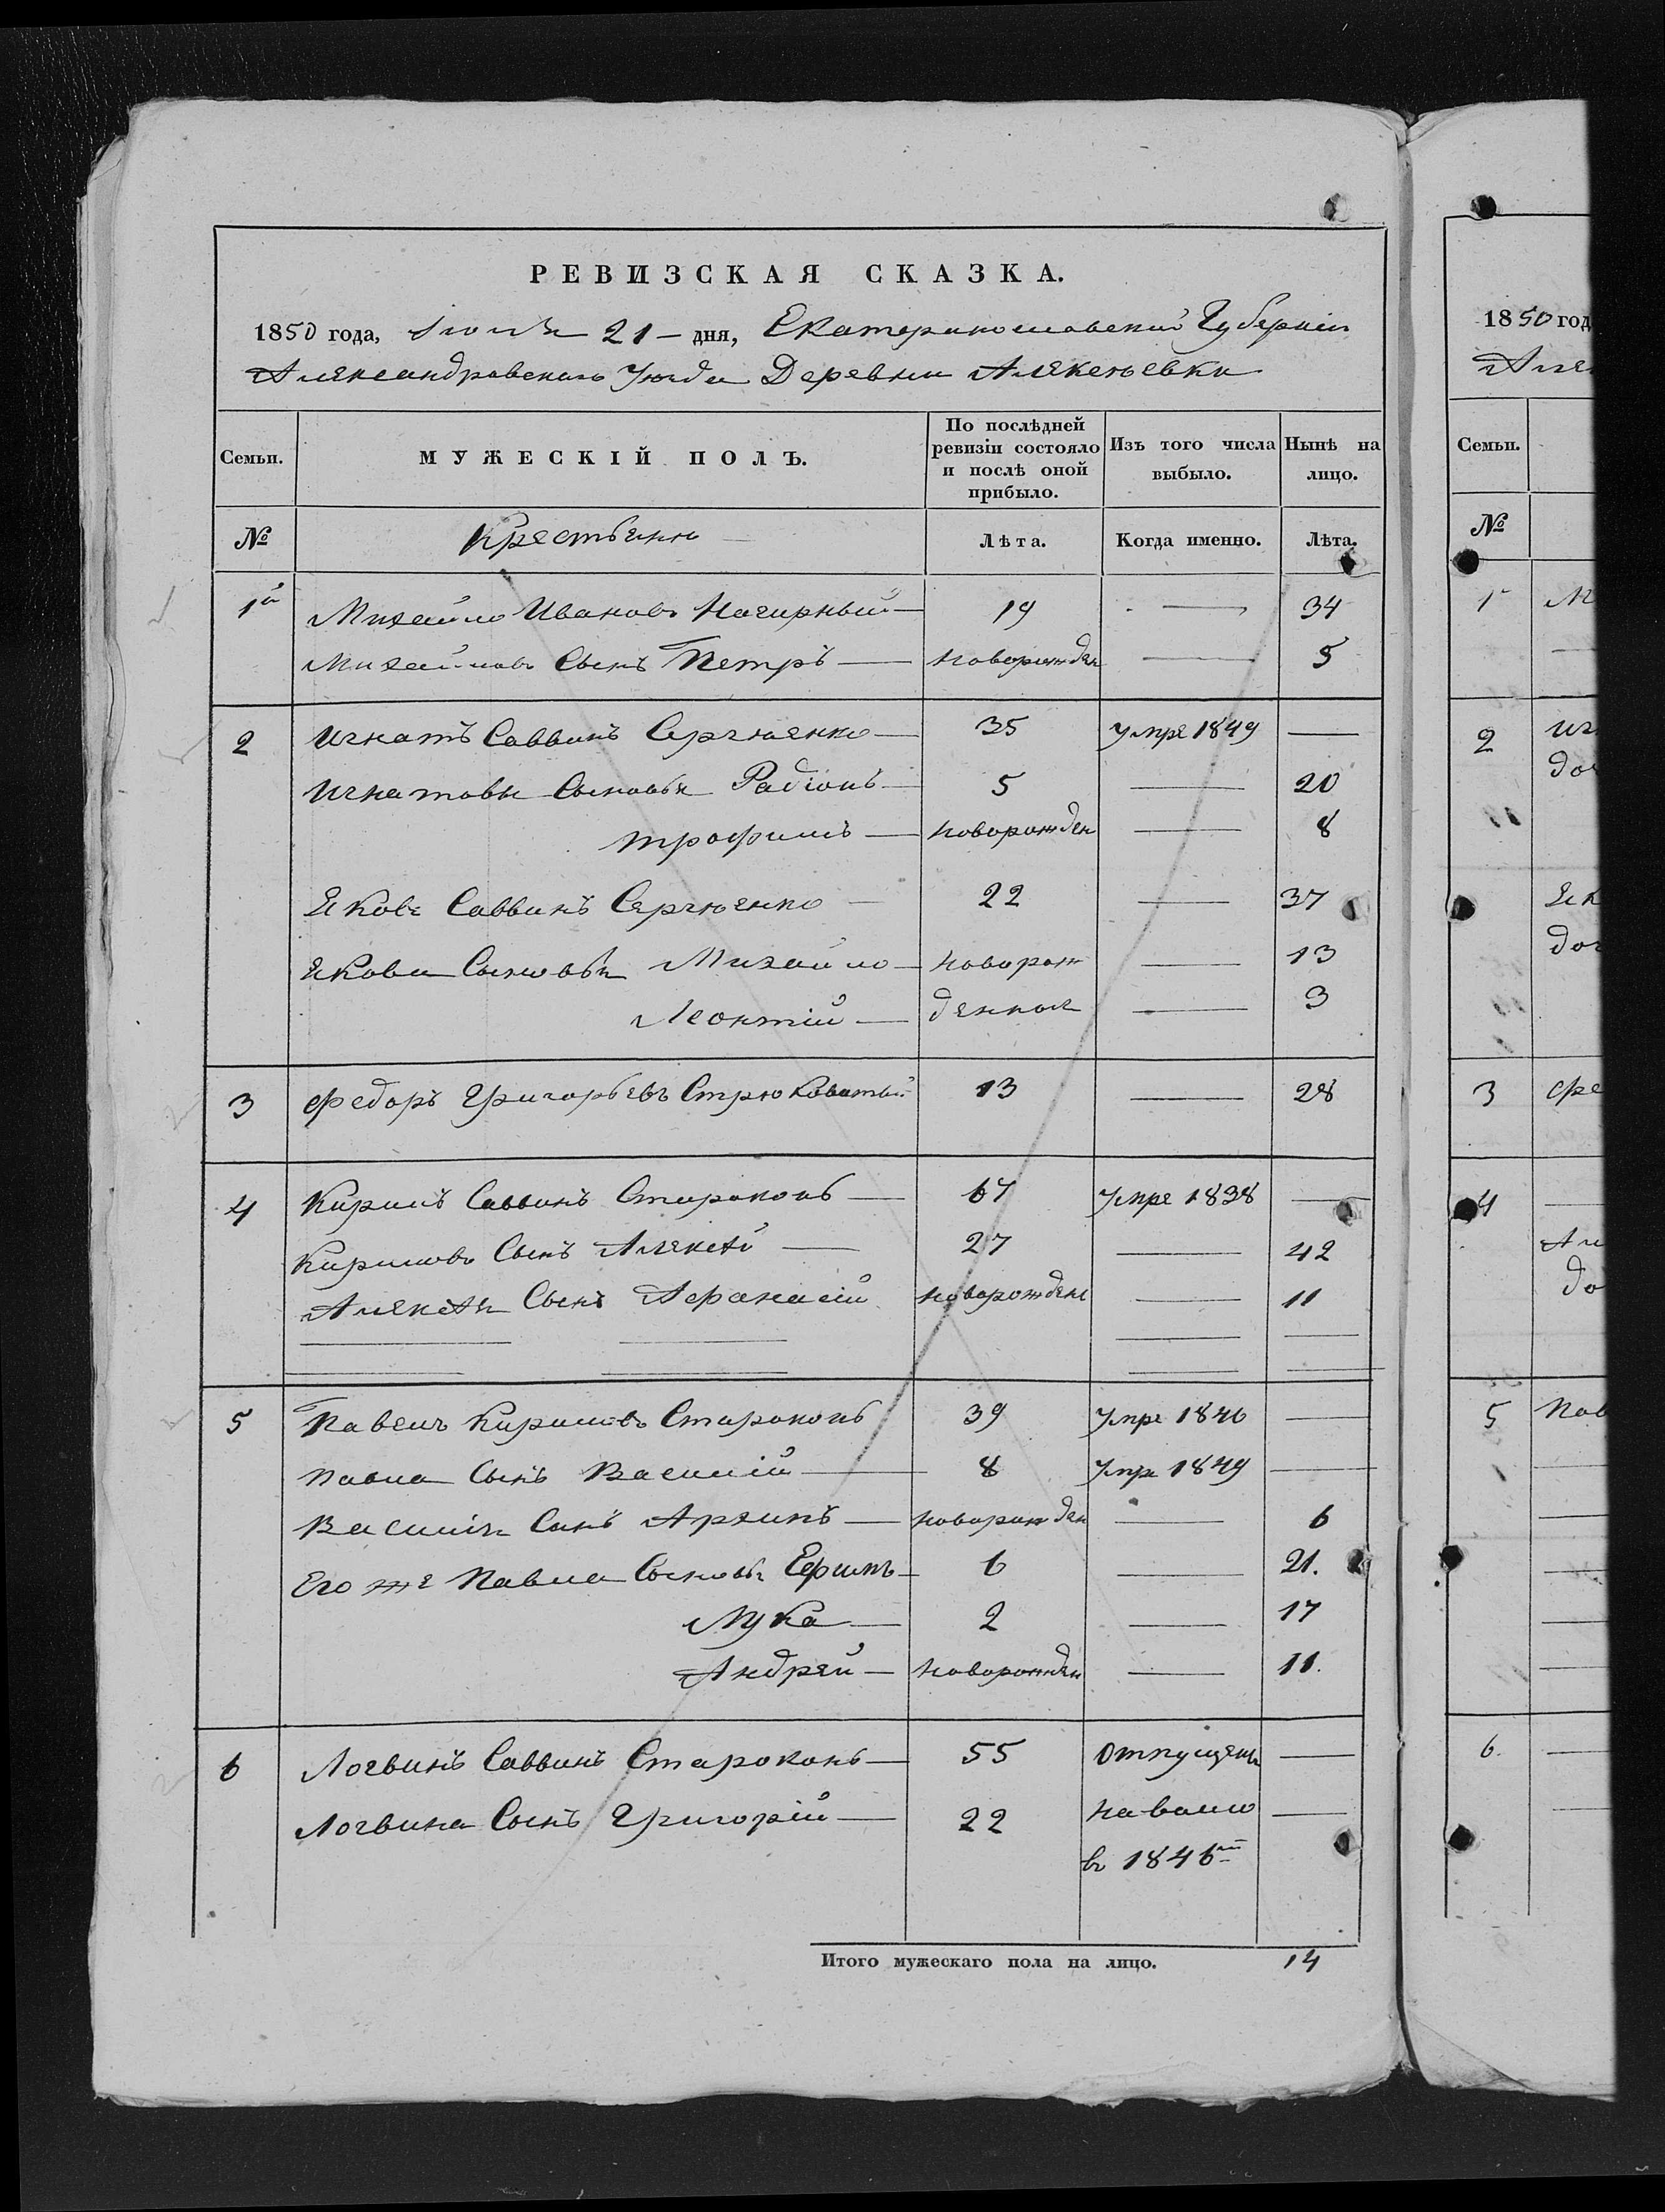 РЕВИЗСКАЯ СКАЗКА.
1850 года, 21 – дня, Екатеринославской Губерніи
Александровскаго Уезда Деревни Алексеевки
Семьи. МУЖЕСКІЙ ПОЛЪ. По послѣдней ревизіи состояло и послѣ оной прибыло. Изъ того числа выбыло. Нынѣ на лицо.
№ Крестьяне Лѣта. Когда именно. Лѣта.
1й Михайло Ивановъ Нагирный 19 — 34
Михайловъ Сынъ Петръ новорожден — 5
2 Игнатъ Саввинъ Сергюенко 35 Умре 1849 —
Игнатовы Сыновья Радіонъ 5 — 20
Трофимъ новорожден — 8
Яковъ Саввинъ Сергюенко 22 — 37
Якова Сыновья Михайло новорож — 13
Леонтій денные — 3
3 Федоръ Григорьевъ Стрюковатый 13 — 28
4 Кирилъ Саввинъ Староконь 67 Умре 1838 —
Кириловъ Сынъ Алексѣй 27 — 42
Алексѣя Сынъ Афанасій новорожден — 11
5 Павелъ Кириловъ Староконь 39 Умре 1846 —
Павла Сынъ Василій 8 Умре 1849 —
Василія Сынъ Архипъ новорожден — 6
Его же Павла Сыновья Ефимъ 6 — 21.
Лука 2 — 17
Андрей новорожден — 11.
6 Логвинъ Саввинъ Староконь 55 Отпущены —
Логвина Сынъ Григорій 22 на волю —
въ 1846м
Итого мужескаго пола на лицо. 14
1850 год
Але
Семьи.
№
1 М
2 Иг
доч
Як
доч
3 Фе
4
Ал
до
5 Пав
6.